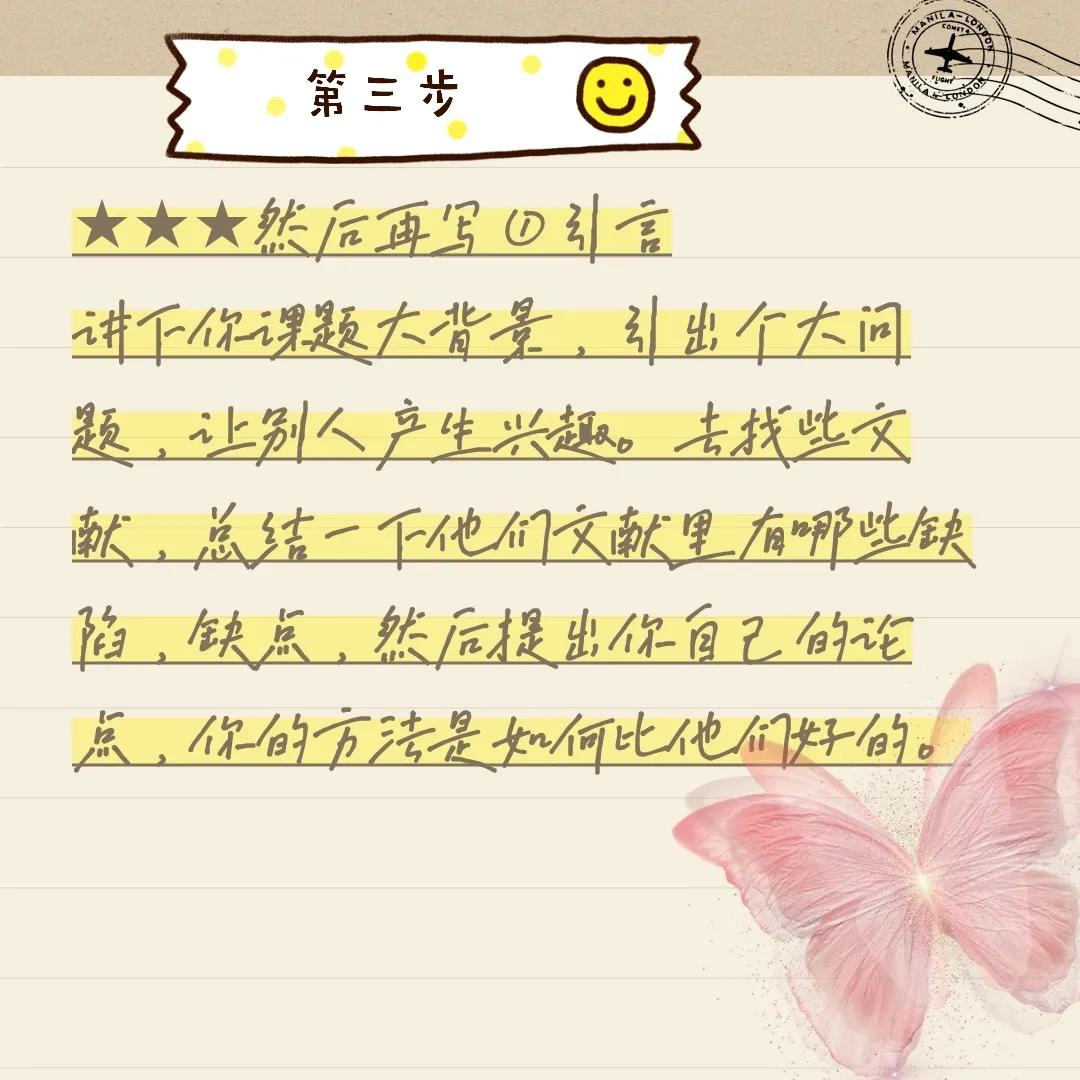 MANILA-LONDON
COMETA
FLIGHT
MANILA-LONDON
第三步
★★★然后再写①引言
讲下你课题大背景，引出个大问
题，让别人产生兴趣。去找些文
献，总结一下他们文献里有哪些缺
陷，缺点，然后提出你自己的论
点，你的方法是如何比他们好的。